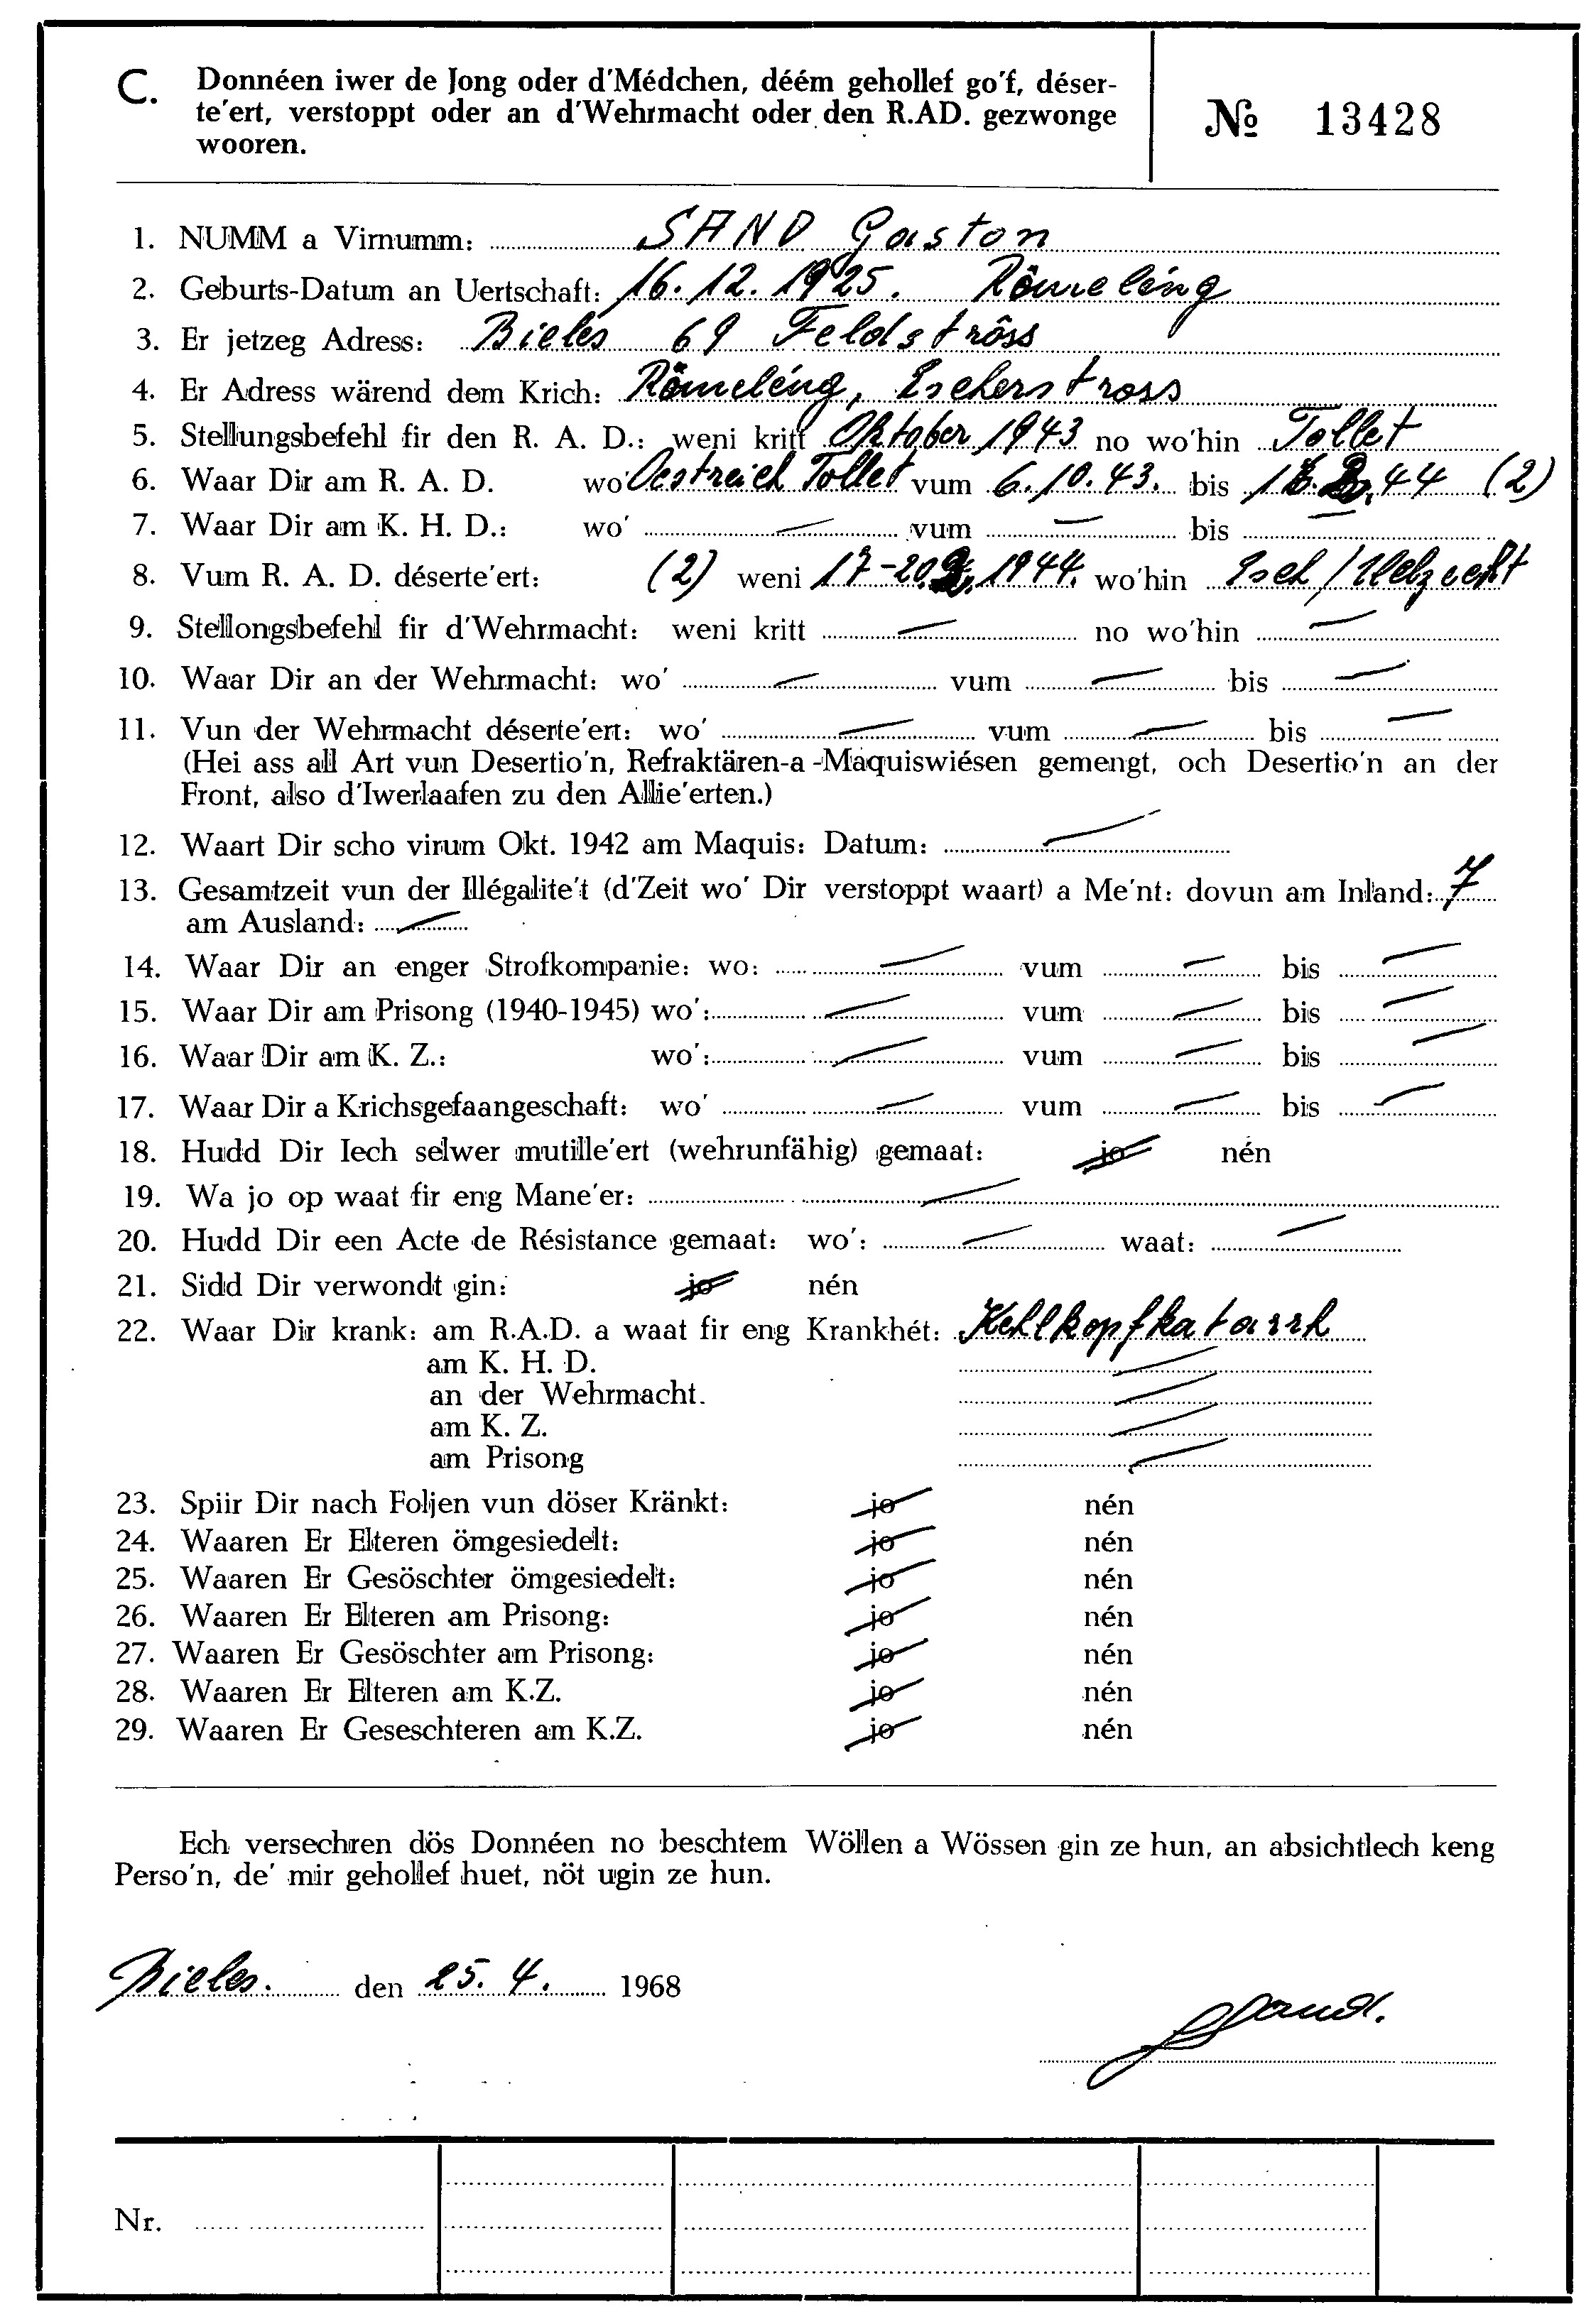 C. Donnéen iwer de Jong oder d'Médchen, déém gehollef go'f, déser-
te'ert, verstoppt oder an d'Wehrmacht oder den R.AD. gezwonge
wooren.
№ 13428
1. NUMM a Virnumm: SAND Gaston
2. Geburts-Datum an Uertschaft: 16.12.1925. Rômeléng
3. Er jetzeg Adress: Bieles 69 Feldstrôss
4. Er Adress wärend dem Krich: Rômeléng, Escherstross
5. Stellungsbefehl fir den R. A. D.: weni kritt Oktober 1943 no wo'hin Tollet
6. Waar Dir am R. A. D. wo' Oestreich Tollet vum 6.10.43. bis 44 (2)
7. Waar Dir am K. H. D.: wo' — vum — bis —
8. Vum R. A. D. déserte'ert: (2) weni 17-20. 1944. wo'hin Esch/Uelzecht
9. Stellongsbefehl fir d'Wehrmacht: weni kritt — no wo'hin —
10. Waar Dir an der Wehrmacht: wo' — vum — bis —
11. Vun der Wehrmacht déserte'ert: wo' — vum — bis —
(Hei ass all Art vun Desertio'n, Refraktären-a-Maquiswiésen gemengt, och Desertio'n an der
Front, also d'Iwerlaafen zu den Allie'erten.)
12. Waart Dir scho virum Okt. 1942 am Maquis: Datum: —
13. Gesamtzeit vun der Illégalite't (d'Zeit wo' Dir verstoppt waart) a Me'nt: dovun am Inland: 7
am Ausland: —
14. Waar Dir an enger Strofkompanie: wo: — vum — bis —
15. Waar Dir am Prisong (1940-1945) wo': — vum — bis —
16. Waar Dir am K. Z.: wo': — vum — bis —
17. Waar Dir a Krichsgefaangeschaft: wo' — vum — bis —
18. Hudd Dir Iech selwer mutille'ert (wehrunfähig) gemaat: jo nén
19. Wa jo op waat fir eng Mane'er: —
20. Hudd Dir een Acte de Résistance gemaat: wo': — waat: —
21. Sidd Dir verwondt gin: jo nén
22. Waar Dir krank: am R.A.D. a waat fir eng Krankhét: Kehlkopfkatarrh
am K. H. D. —
an der Wehrmacht. —
am K. Z. —
am Prisong —
23. Spiir Dir nach Foljen vun döser Kränkt: jo nén
24. Waaren Er Elteren ömgesiedelt: jo nén
25. Waaren Er Gesöschter ömgesiedelt: jo nén
26. Waaren Er Elteren am Prisong: jo nén
27. Waaren Er Gesöschter am Prisong: jo nén
28. Waaren Er Elteren am K.Z. jo nén
29. Waaren Er Geseschteren am K.Z. jo nén
Ech versechren dös Donnéen no beschtem Wöllen a Wössen gin ze hun, an absichtlech keng
Perso'n, de' mir gehollef huet, nöt ugin ze hun.
Bieles. den 25. 4. 1968
Sand.
Nr.